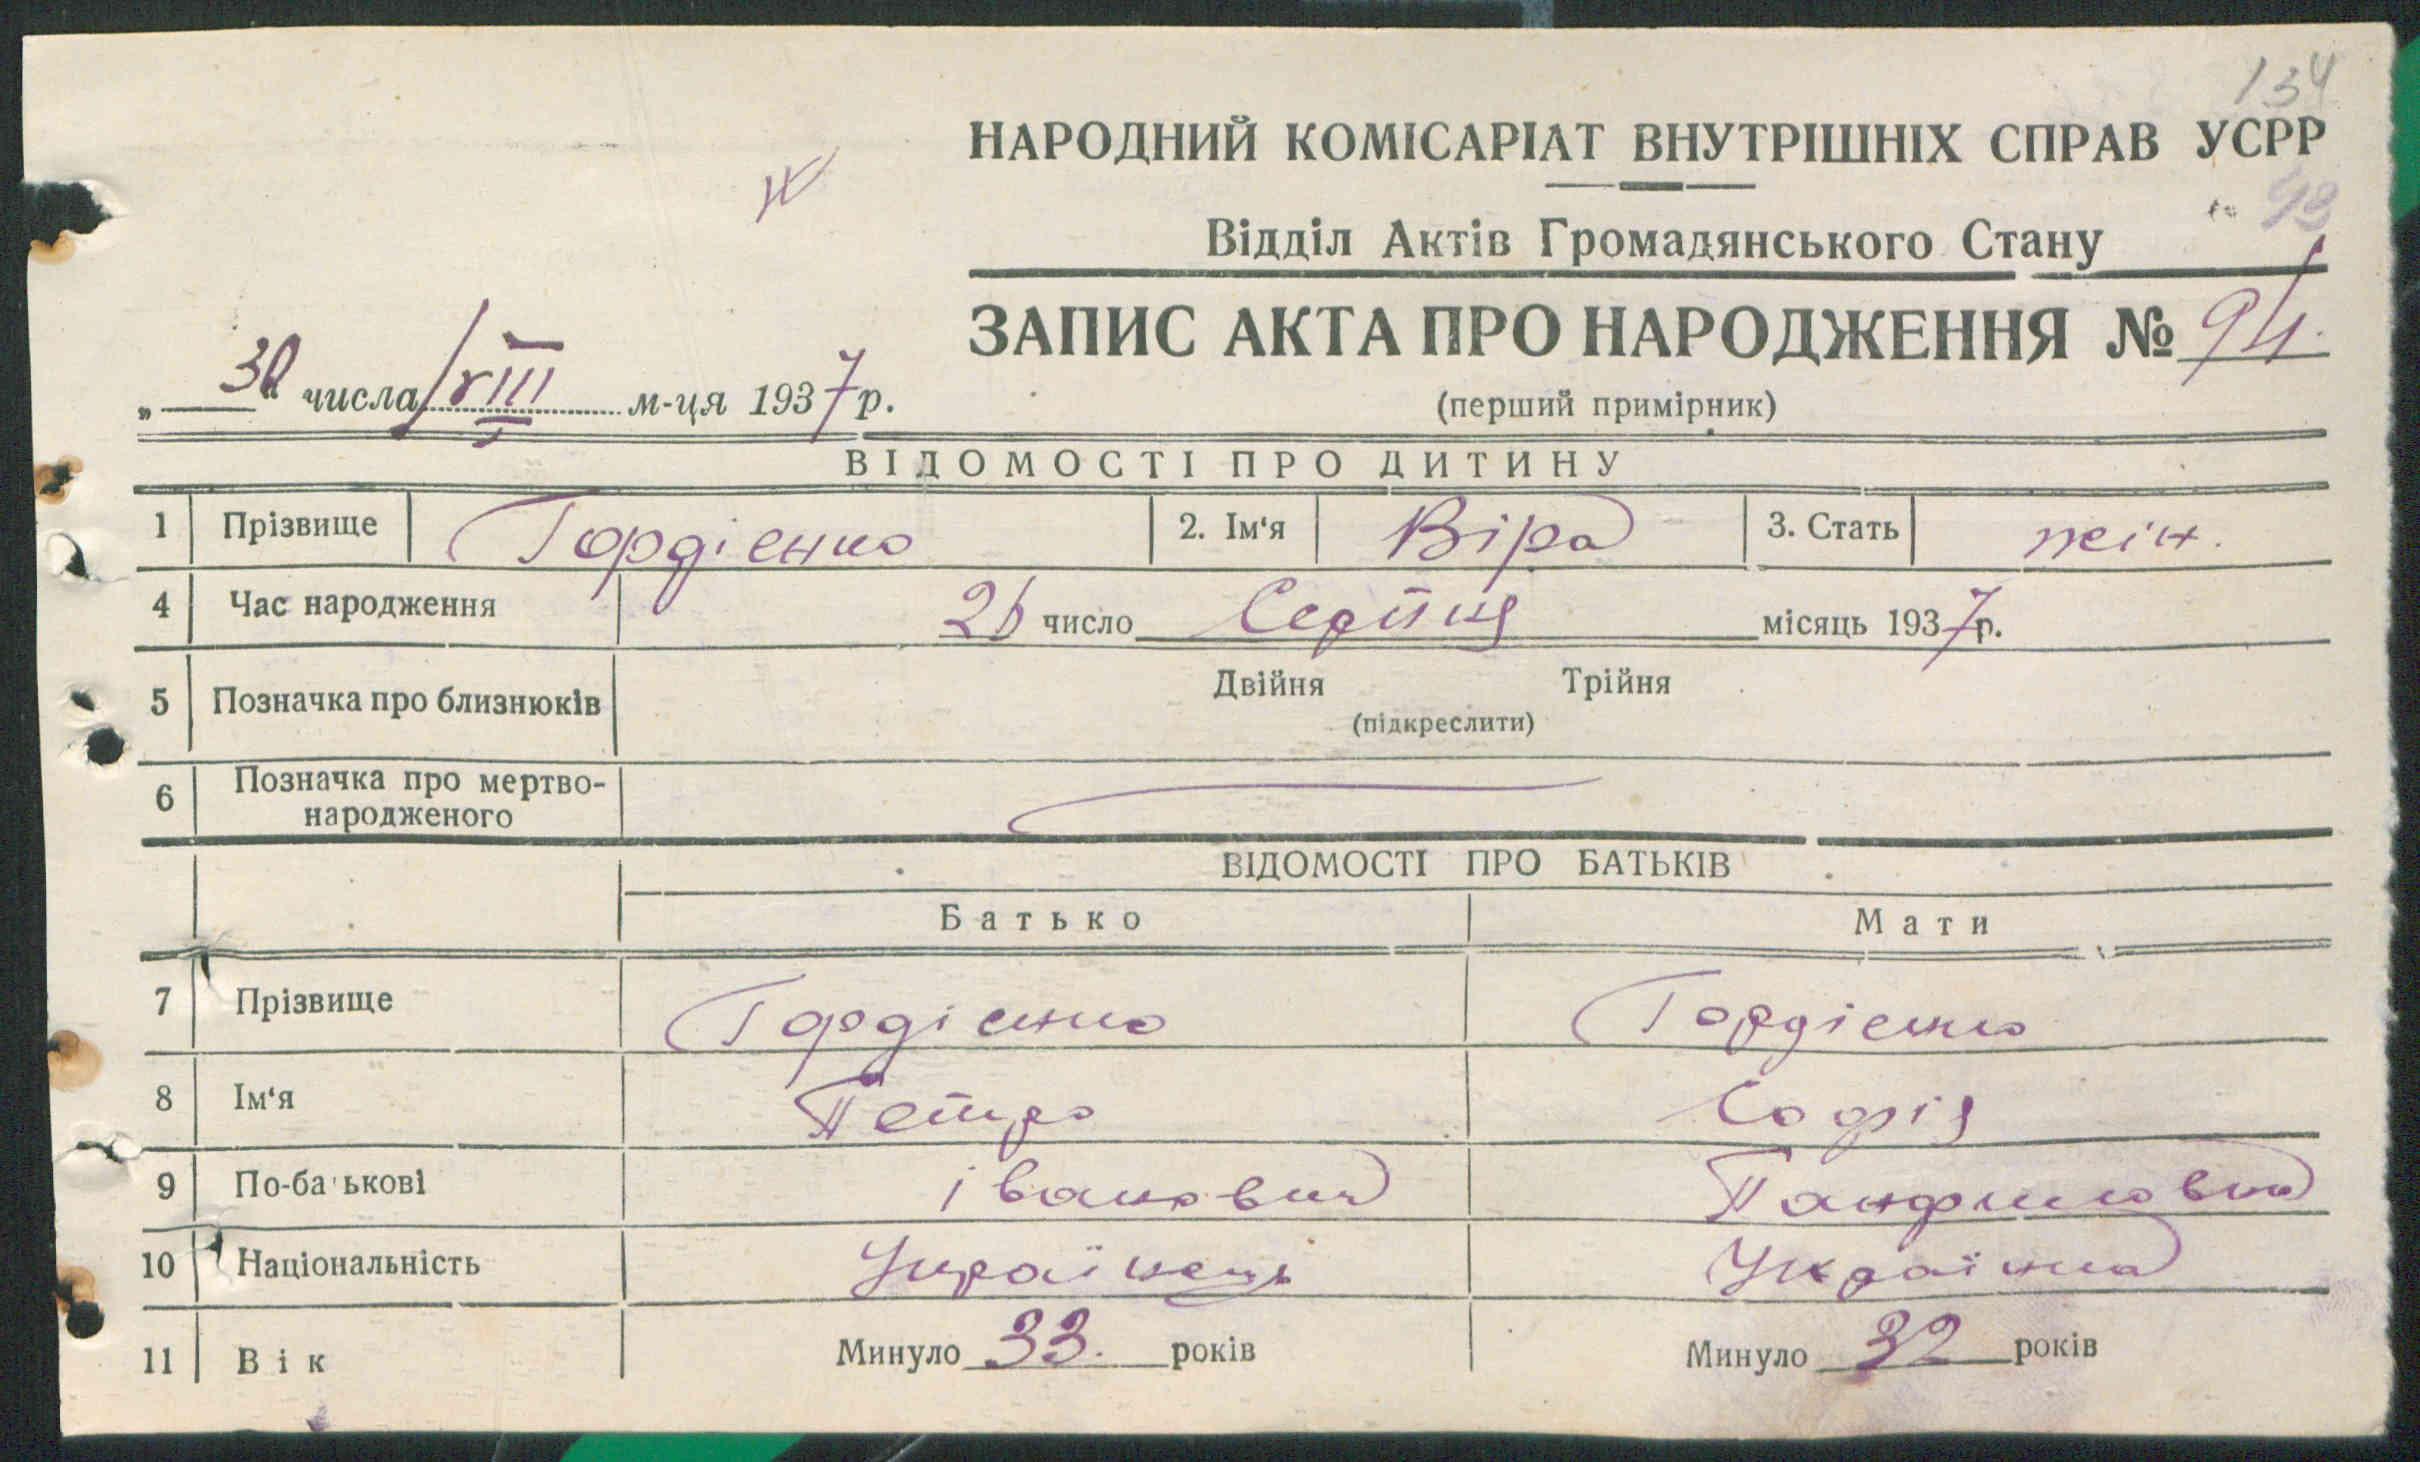 134
НАРОДНИЙ КОМІСАРІАТ ВНУТРІШНІХ СПРАВ УСРР
Відділ Актів Громадянського Стану
ЗАПИС АКТА ПРО НАРОДЖЕННЯ № 94.
„30“ числа VIII м-ця 1937 р.
(перший примірник)
ВІДОМОСТІ ПРО ДИТИНУ
1 Прізвище Гордієнко 2. Ім‘я Віра 3. Стать жін.
4 Час народження число Серпня місяць 1937 р.
5 Позначка про близнюків Двійня Трійня
(підкреслити)
6 Позначка про мертво-
народженого
ВІДОМОСТІ ПРО БАТЬКІВ
Батько Мати
7 Прізвище Гордієнко Гордієнко
8 Ім‘я Петро Софія
9 По-батькові Іванович Панфиловна
10 Національність Українець Українка
11 Вік Минуло 33. років Минуло 32 років